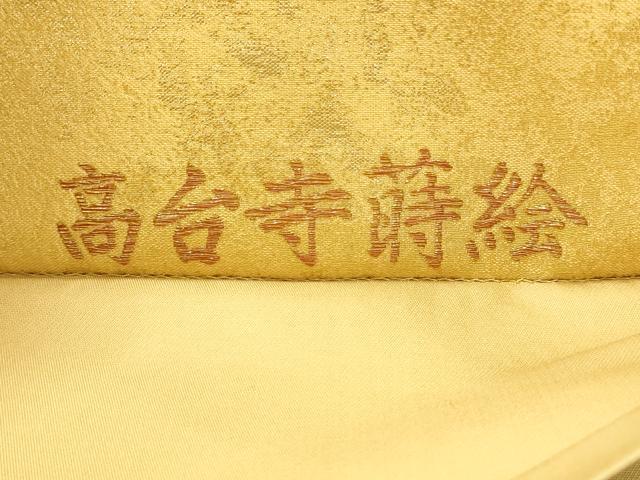 高台寺蒔絵